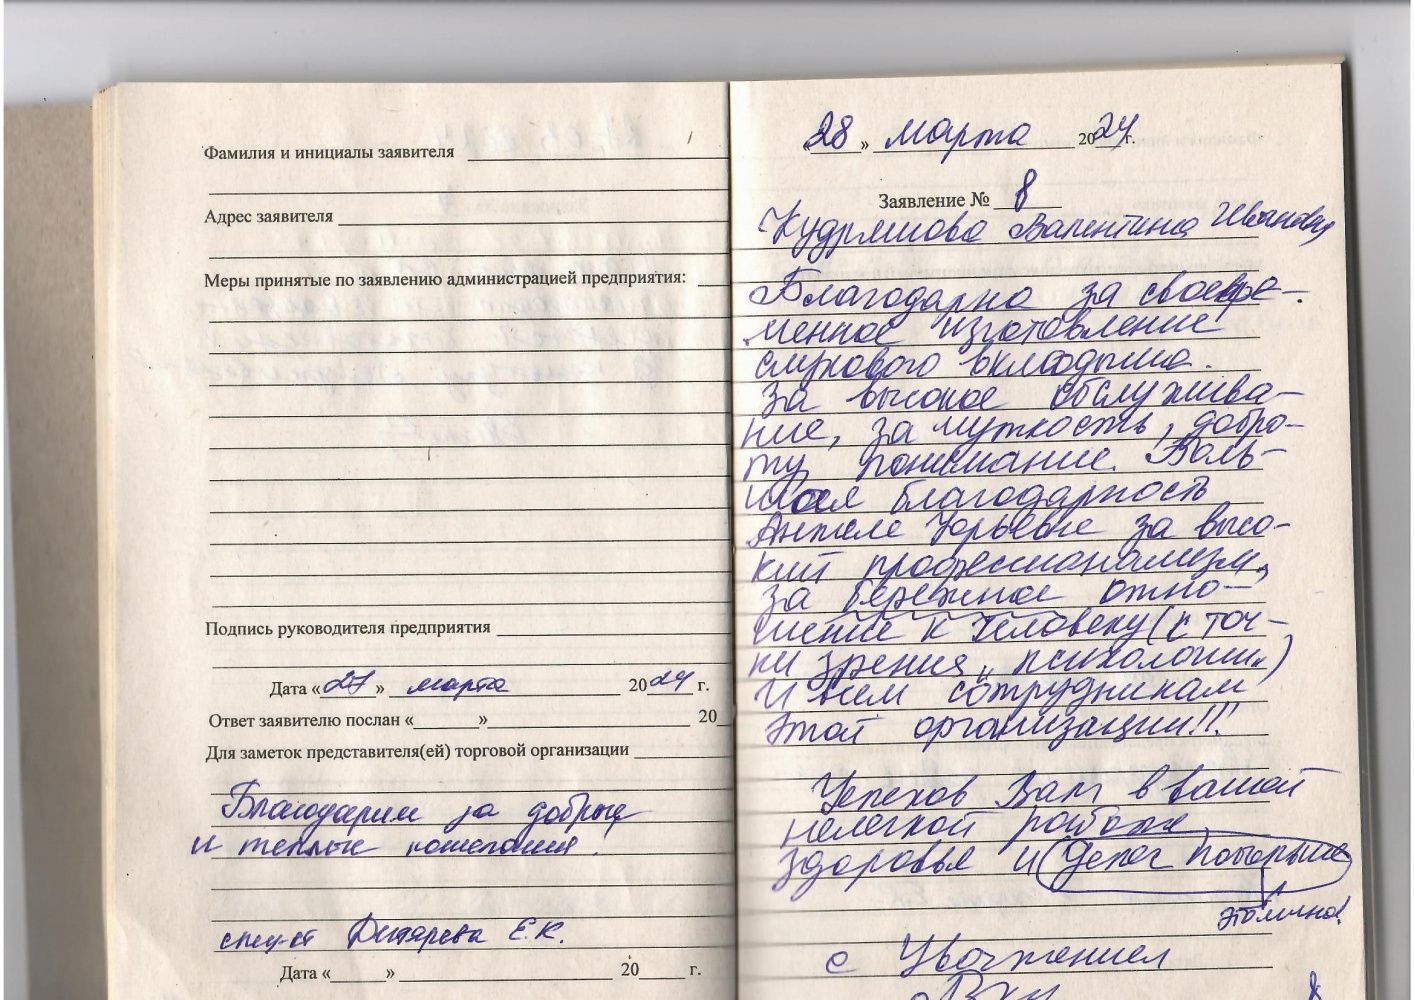 Фамилия и инициалы заявителя
Адрес заявителя
Меры принятые по заявлению администрацией предприятия:
Подпись руководителя предприятия
Дата «27» марта 2024 г.
Ответ заявителю послан « » 20
Для заметок представителя(ей) торговой организации
Благодарим за добрые
и теплые пожелания.
спец-ст Е.К.
Дата « » 20 г.
«28» марта 2024 г.
Заявление № 8
Кудряшова Валентина Ивановна
Благодарна за своевре-
менное изготовление
слухового вкладыша.
За высокое обслужива-
ние, за чуткость, добро-
ту, понимание. Боль-
шая благодарность
Анжеле Юрьевне за высо-
кий профессионализм,
за бережное отно-
шение к человеку (с точ-
ки зрения „психологии“)
И всем сотрудникам
этой организации!!!
Успехов Вам в вашей
нелегкой работе,
здоровья и денег побольше
это лично!
с Уважением
8